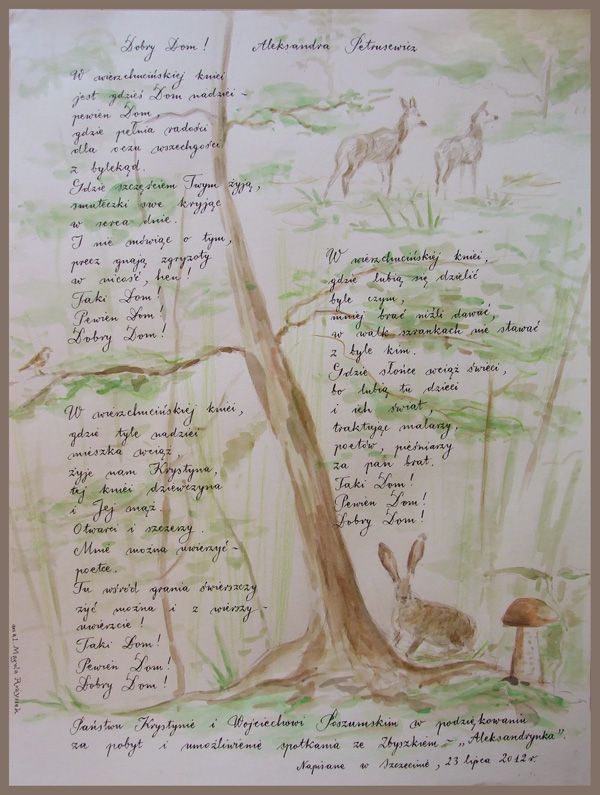 Dobry Dom! Aleksandra Petrusewicz
W wierzchucińskiej kniei
jest gdzieś Dom nadziei -
pewien Dom,
gdzie pełnia radości
dla oczu wszechgości
z bylekąd.
Gdzie szczęściem Twym żyją,
smuteczki swe kryjąc
w serca dnie.
I nie mówiąc o tym,
precz gnają zgryzoty
w nicość, hen!
Taki Dom!
Pewien Dom!
Dobry Dom!
W wierzchucińskiej kniei,
gdzie lubią się dzielić
byle czym,
mniej brać niźli dawać,
w walk szrankach nie stawać
z byle kim.
Gdzie słońce wciąż świeci,
bo lubią tu dzieci
i ich świat,
traktując malarzy,
poetów, pieśniarzy
za pan brat.
Taki Dom!
Pewien Dom!
Dobry Dom!
W wierzchucińskiej kniei,
gdzie tyle nadziei
mieszka wciąż,
żyje nam Krystyna,
tej kniei dziewczyna
i Jej mąż.
Otwarci i szczerzy.
Mnie można uwierzyć -
poetce.
Tu wśród grania świerszczy
żyć można i z wierszy -
uwierzcie!
Taki Dom!
Pewien Dom!
Dobry Dom!
Państwu Krystynie i Wojciechowi Poszumskim w podziękowaniu
za pobyt i umożliwienie spotkania ze Zbyszkiem - "Aleksandrynka".
Napisane w Szczecinie, 23 lipca 2012 r.
mal. Magda